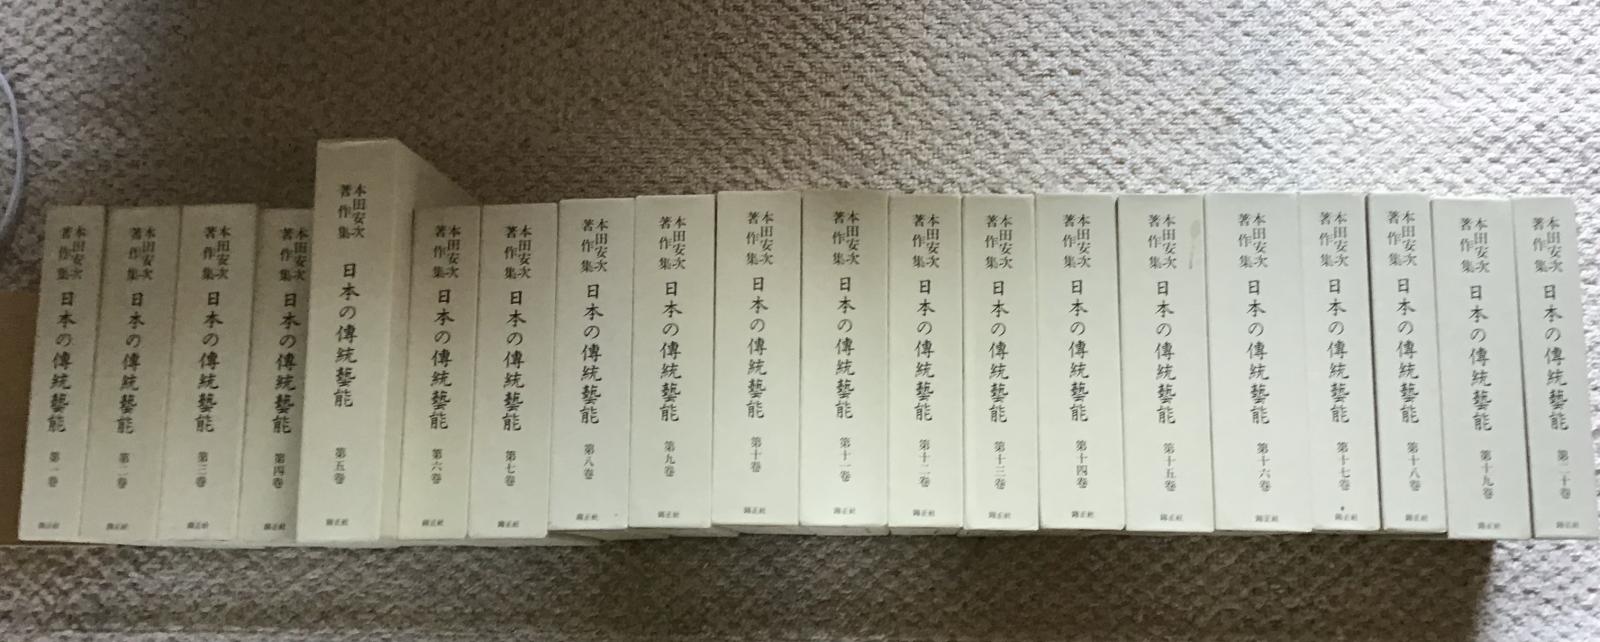 本田安次
著作集
日本の傳統藝能
第一巻
錦正社
本田安次
著作集
日本の傳統藝能
第二巻
錦正社
本田安次
著作集
日本の傳統藝能
第三巻
錦正社
本田安次
著作集
日本の傳統藝能
第四巻
錦正社
本田安次
著作集
日本の傳統藝能
第五巻
錦正社
本田安次
著作集
日本の傳統藝能
第六巻
錦正社
本田安次
著作集
日本の傳統藝能
第七巻
錦正社
本田安次
著作集
日本の傳統藝能
第八巻
錦正社
本田安次
著作集
日本の傳統藝能
第九巻
錦正社
本田安次
著作集
日本の傳統藝能
第十巻
錦正社
本田安次
著作集
日本の傳統藝能
第十一巻
錦正社
本田安次
著作集
日本の傳統藝能
第十二巻
錦正社
本田安次
著作集
日本の傳統藝能
第十三巻
錦正社
本田安次
著作集
日本の傳統藝能
第十四巻
錦正社
本田安次
著作集
日本の傳統藝能
第十五巻
錦正社
本田安次
著作集
日本の傳統藝能
第十六巻
錦正社
本田安次
著作集
日本の傳統藝能
第十七巻
錦正社
本田安次
著作集
日本の傳統藝能
第十八巻
錦正社
本田安次
著作集
日本の傳統藝能
第十九巻
錦正社
本田安次
著作集
日本の傳統藝能
第二十巻
錦正社